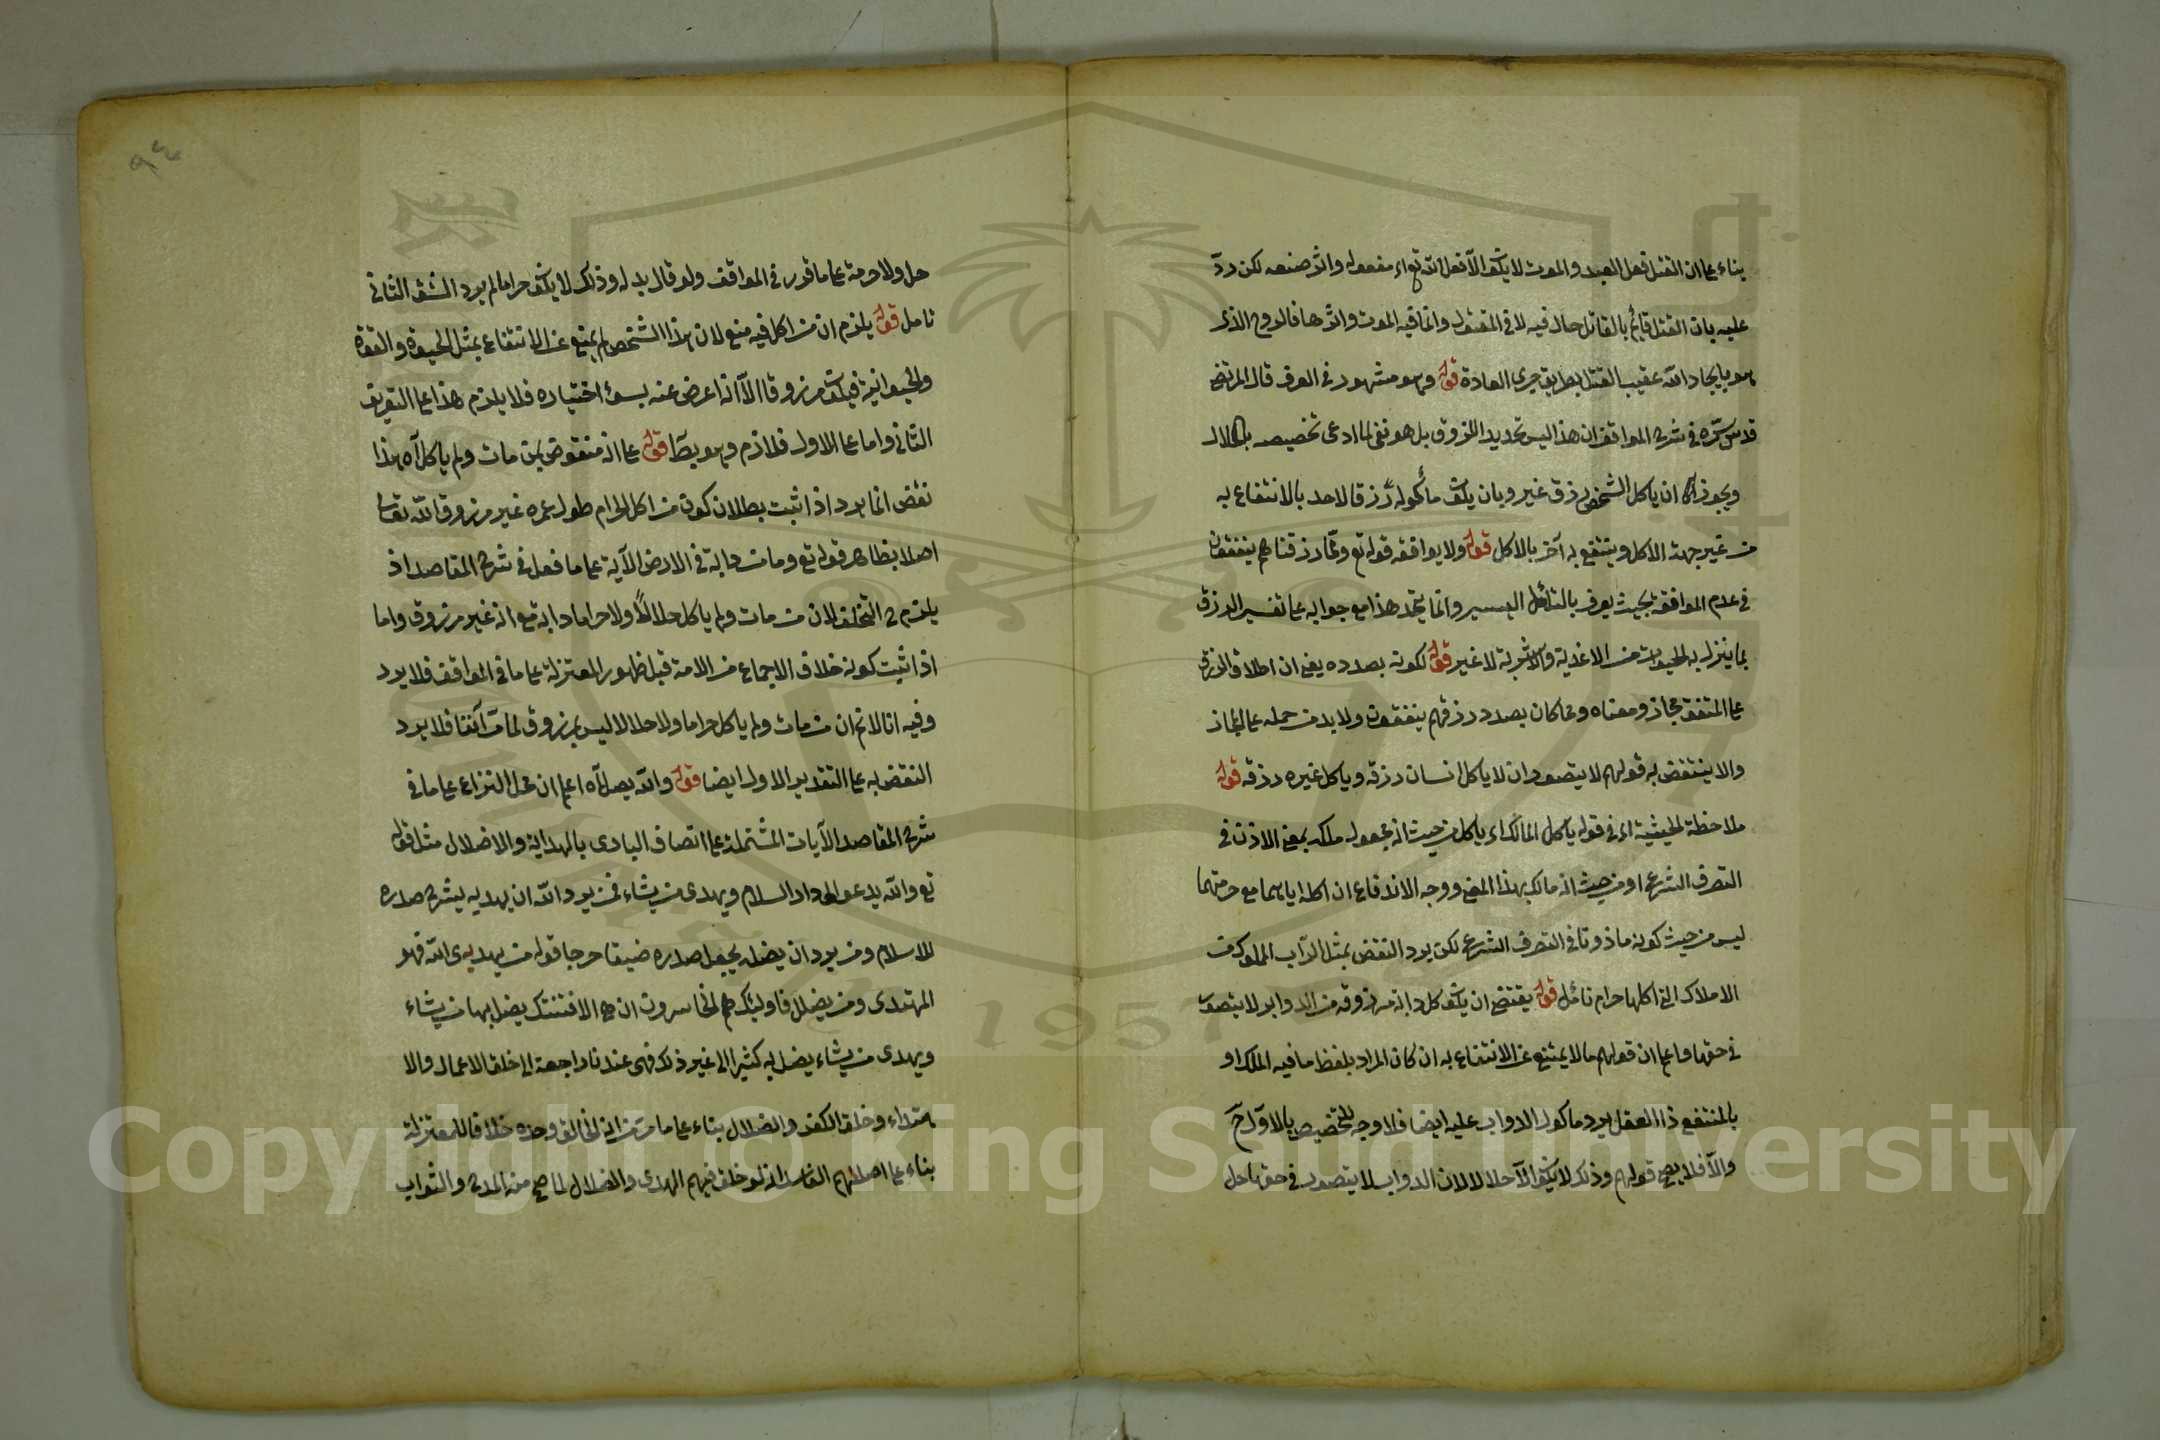 بناء على ان القتل فعل العبد والموت لا يكون الا فعل الله تع اى مفعوله واثر صنعه لكن ردّ
عليه بان القتل قائم بالقاتل حال فيه لا فى المقتول وانما فيه الموت واثرها فالروح الذى
هو بايجاد الله عقيب القتل بطريق جرى العادة قوله وهو مشهور فى العرف قال المرتضى
قدس سرّه فى شرح المواقف ان هذا ليس تحديدا للرزق بل هو نفى لما ادعى تخصيصه بالحلال
ويجوز ان ياكل الشخص رزق غيره بان يكون مأكوله رزقا لاحد بالانتفاع به
من غير جهة الاكل وينتفع به آخر بالاكل قوله ولا يوافقه قوله تع وممّا رزقناهم ينفقون
فى عدم الموافقة بحيث يعرف بالتأمّل اليسير وانما يتجه هذا مع جوابه على تفسير الرزق
بما ينزل به الحيوان من الاغذية والاشربة لا غير قوله لكونه بصدده يعنى ان اطلاق الرزق
على المنفق مجاز ومعناه ومما كان بصدد رزقهم ينفقون ولابد من حمله على المجاز
والا ينتقض به قولهم لا يتصور ان لا ياكل انسان رزقه وياكل غيره رزقه قوله
ملاحظة الحيثية اى فى قوله ياكل المالك اى ياكل من حيث انه مجعول ملكه بمعنى الاذن فى
التصرف الشرعى او من حيث انه مالك بهذا المعنى ووجه الاندفاع ان اكله اياهما مع حرمتهما
ليس من حيث كونه ماذونا فى التصرف الشرعى لكن يرد النقض بمثل الملوك من
الاملاك التى اكلها حرام تأمّل قوله يقتضى ان يكون كل دابة مرزوقة من الدواب لا يتصور
فى حقها واعلم ان قولهم ما لا يمتنع عن الانتفاع به ان كان المراد بلفظ ما فيه الملك او
بالمنتفع ذا العقل يرد ماكول الدواب عليه ايضا فلا وجه للتخصيص بالاول
والّا فلا يصح قولهم وذلك لا يكون الّا حلالا لان الدواب لا يتصور فى حقها حل
حل ولا حرمة على ما قرر فى المواقف ولو قال بدله وذلك لا يكون حراما لم يرد الشق الثانى
تامل قوله يلزم ان من اكل فيه منع لان هذا الشخص لم يمتنع عن الانتفاع بمثل الحيوة والقوة
والحيوانية فيكون مرزوقا الّا انه اعرض عنه بسوء اختياره فلا يلزم هذا على التعريف
الثانى واما على الاول فلازم وهو بط قوله على انه منقوض بمن مات ولم ياكل آه هذا
نقض انما يرد اذا ثبت بطلان كون من اكل الحرام طول عمره غير مرزوق الله تعالى
اصلا بظاهر قوله تع وما من دابة فى الارض الآية على ما فعل فى شرح المقاصد اذ
يلزم التخلف لان من مات ولم ياكل حلالا ولا حراما دابة مع انه غير مرزوق واما
اذا ثبت كونه خلاف الاجماع من الامة قبل ظهور المعتزلة على ما فى المواقف فلا يرد
وفيه انا لا نم ان من مات ولم ياكل حراما ولا حلالا ليس بمرزوق لما مرّ آنفا فلا يرد
النقض به على التقدير الاول ايضا قوله والله يضل آه اعلم ان محل النزاع على ما فى
شرح المقاصد الآيات المشتملة على اتصاف البارى بالهداية والاضلال مثل قوله
تع والله يدعو الى دار السلام ويهدى من يشاء فمن يرد الله ان يهديه يشرح صدره
للاسلام ومن يرد ان يضله يجعل صدره ضيقا حرجا قوله من يهديه الله فهو
المهتدى ومن يضلل فاولئك هم الخاسرون ان هى الا فتنتك يضل بها من يشاء
ويهدى من يشاء يضل به كثيرا الى غير ذلك فهى عندنا راجعة الى خلق الاعمال والا
هتداء وخلق الكفر والضلال بناء على ما مر من انه الخالق وحده خلافا للمعتزلة
بناء على اصلهم الفاسد انه لو خلق فيهم الهدى والضلال لما صح منه المدح والثواب
٩٤
Copyright © King Saud University
1957